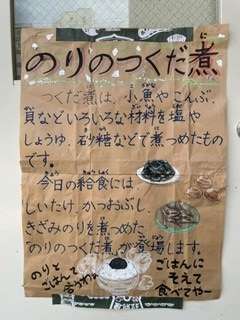 のりのつくだ煮
つくだ煮は、小魚やこんぶ、
貝などいろいろな材料を塩や
しょうゆ、砂糖などで煮つめたもの
です。
今日の給食には、
しいたけ、かつおぶし、
きざみのりを煮つめた
"のりのつくだ煮"が登場します。
のりと
ごはんって
合うわぁ
ごはんに
そえて
食べてやー